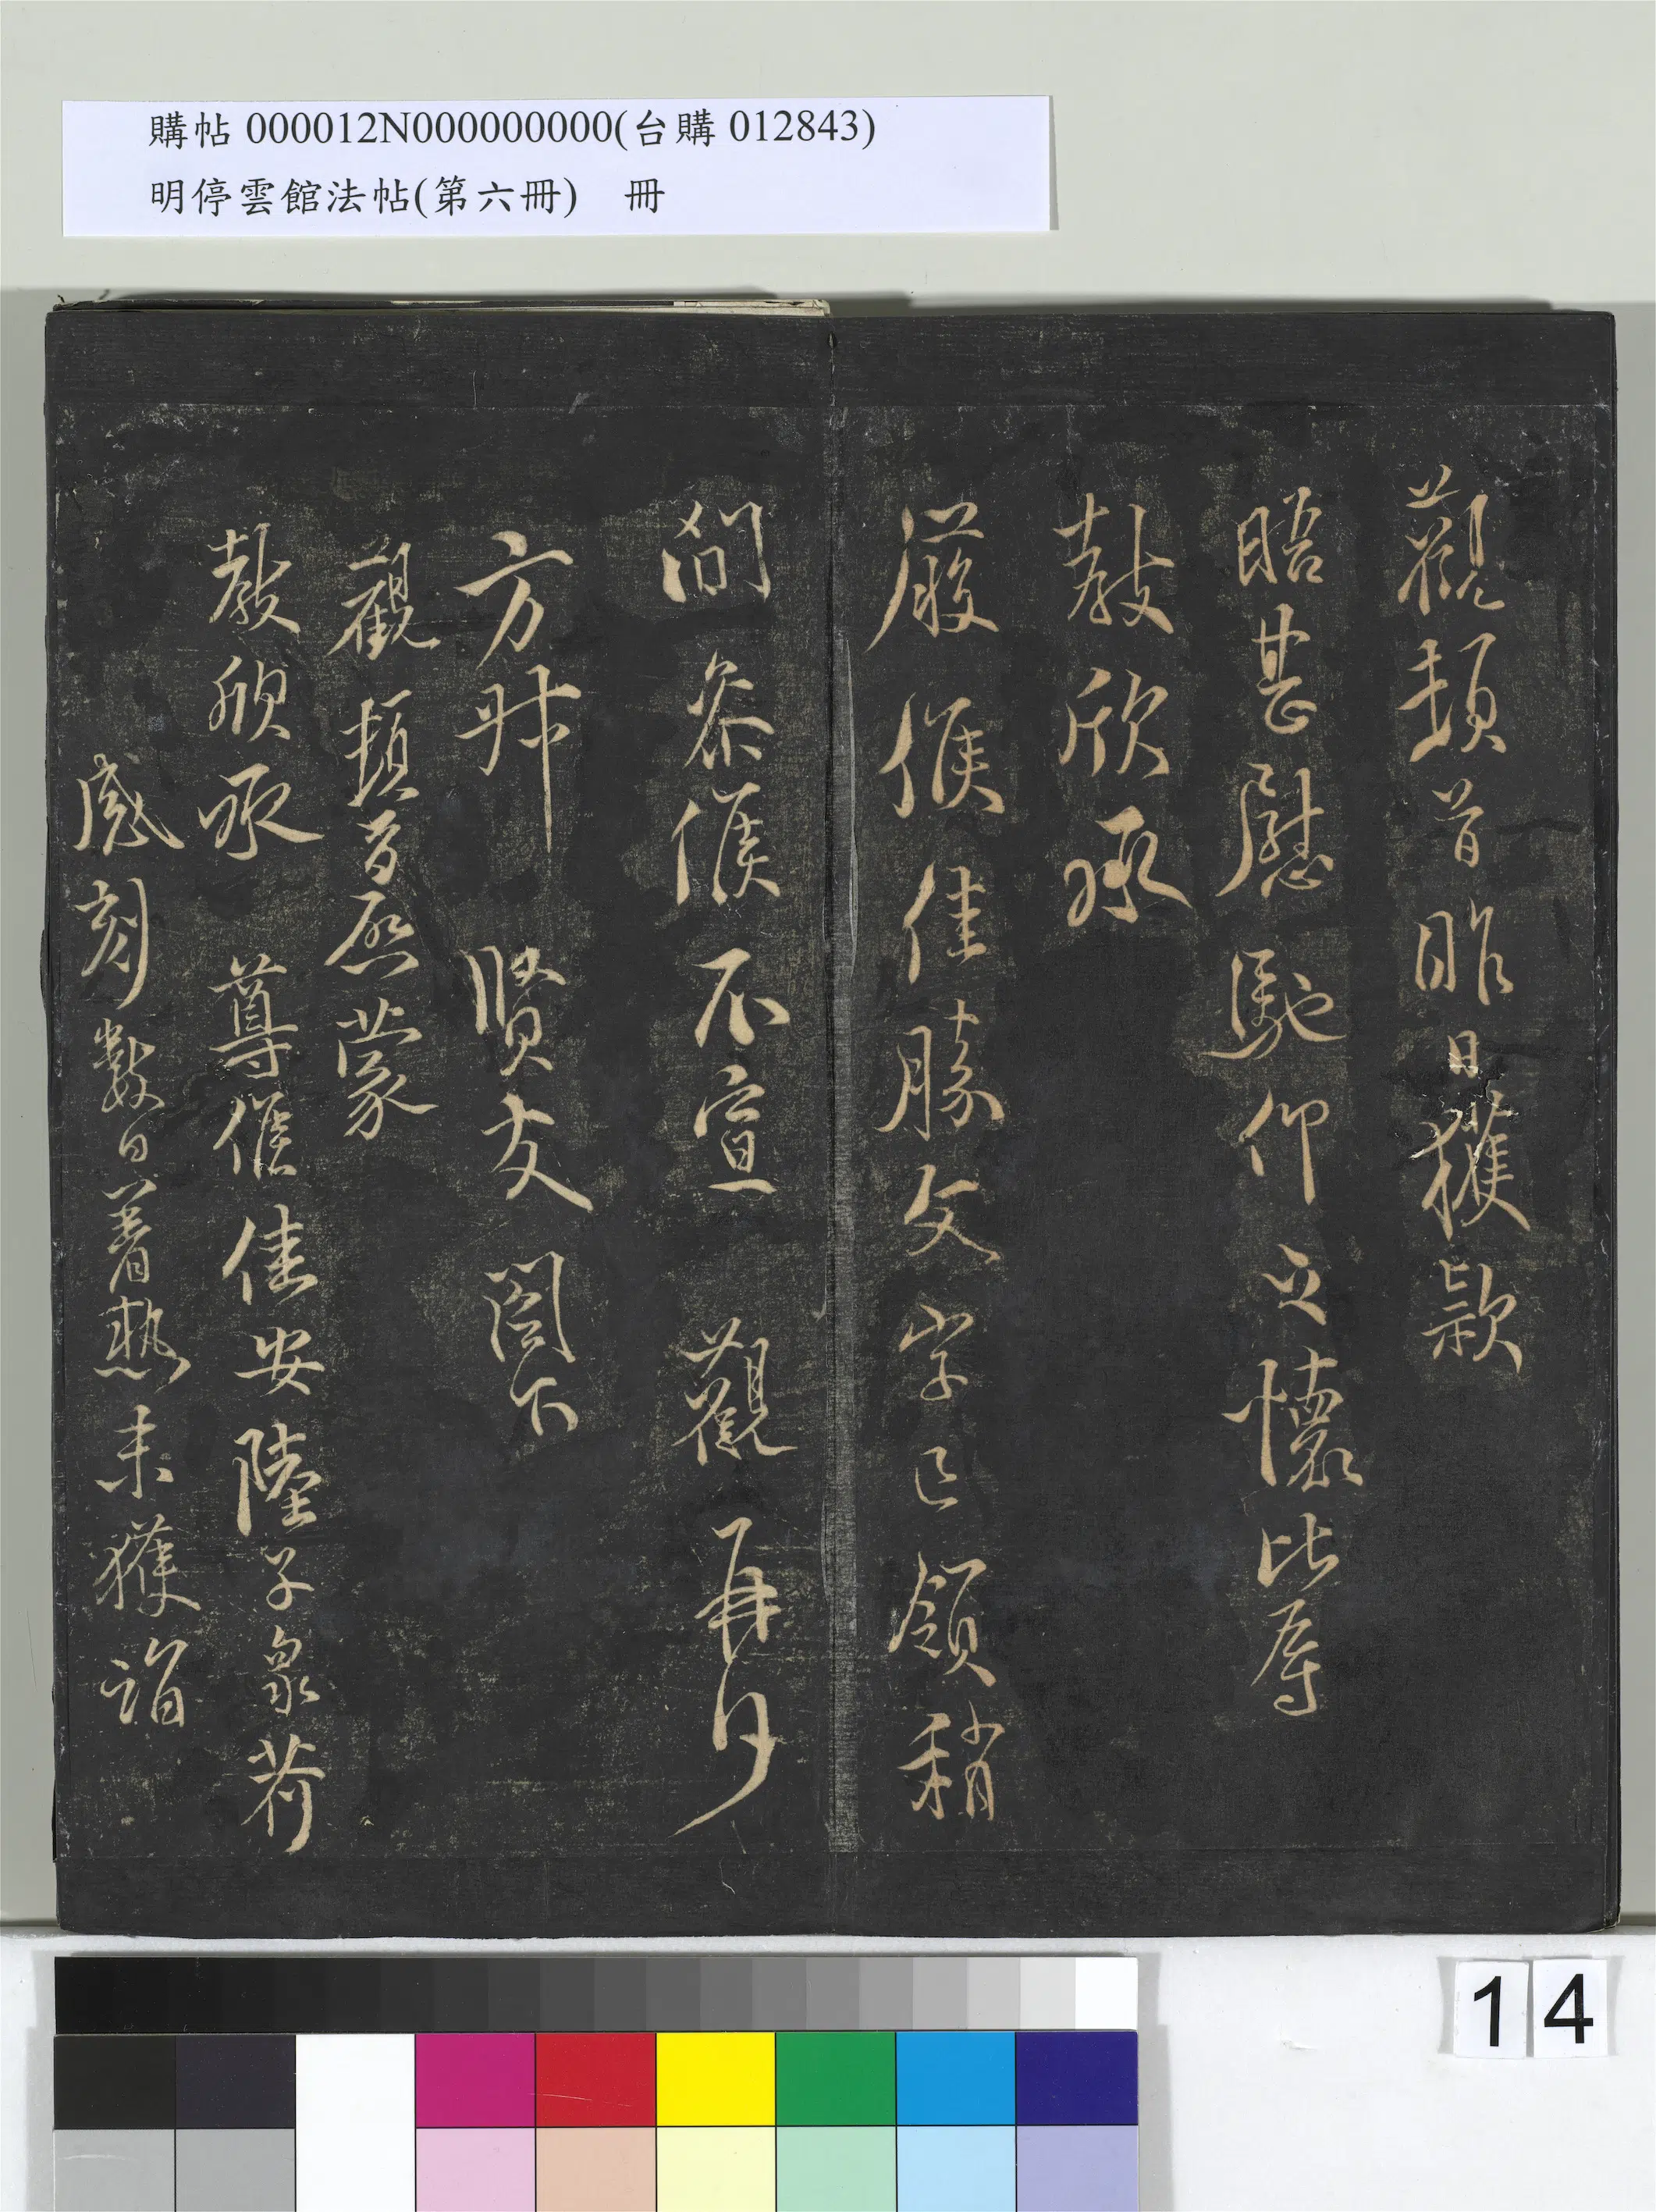 購帖 000012N000000000(台購 012843)
明停雲館法帖(第六冊) 冊
觀頓首昨日獲款
晤甚慰馳仰之懷比辱
教欣承
履候佳勝文字已領稍
間參候不宣 觀再拜
方叔 賢友閣下
觀頓首啓蒙
教欣承 尊候佳安陸子泉荷
感刻數日暑熱未獲詣
14